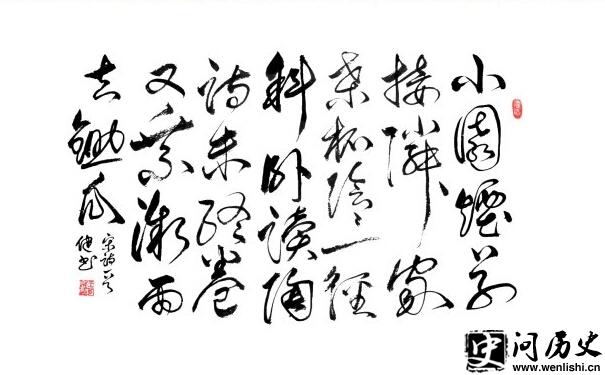 小園煙草
接隣家
桑柘陰〻一徑
斜卧讀陶
詩未終卷
又乘微雨
去鋤瓜
宋詩一首
健书
史 问历史
www.wenlishi.cn